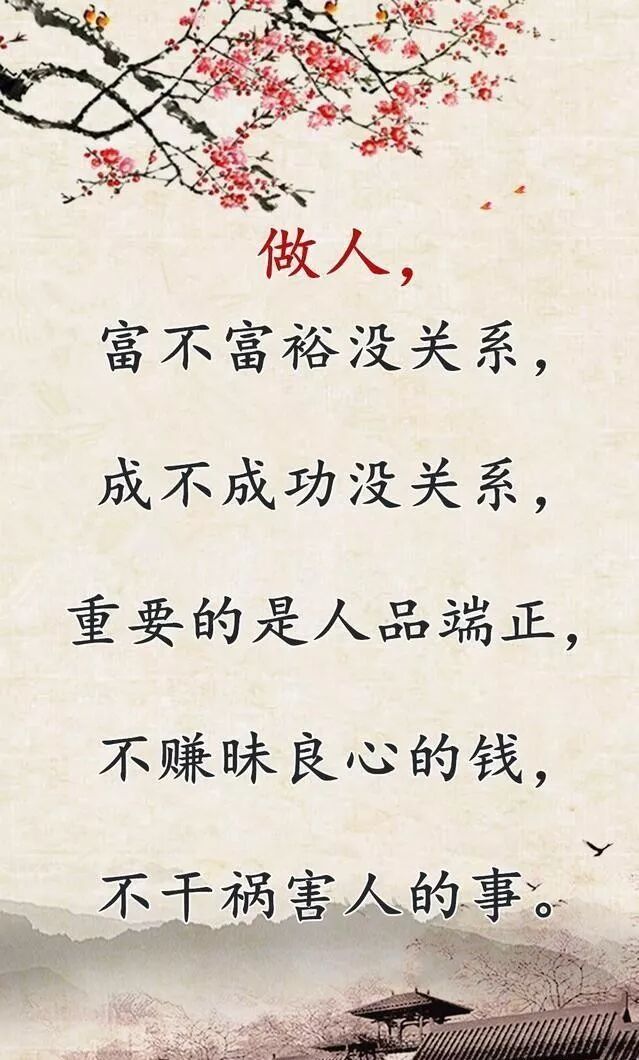 做人，
富不富裕没关系，
成不成功没关系，
重要的是人品端正，
不赚昧良心的钱，
不干祸害人的事。